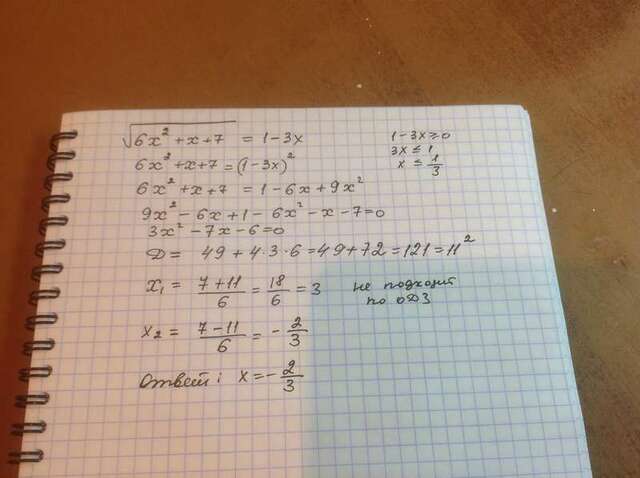 √(6x² + x + 7) = 1 - 3x
1 - 3x ≥ 0
3x ≤ 1
x ≤ 1/3
6x² + x + 7 = (1 - 3x)²
6x² + x + 7 = 1 - 6x + 9x²
9x² - 6x + 1 - 6x² - x - 7 = 0
3x² - 7x - 6 = 0
Д = 49 + 4·3·6 = 49 + 72 = 121 = 11²
x₁ = (7 + 11)/6 = 18/6 = 3 не подходит
по ОДЗ
x₂ = (7 - 11)/6 = - 2/3
Ответ: x = - 2/3